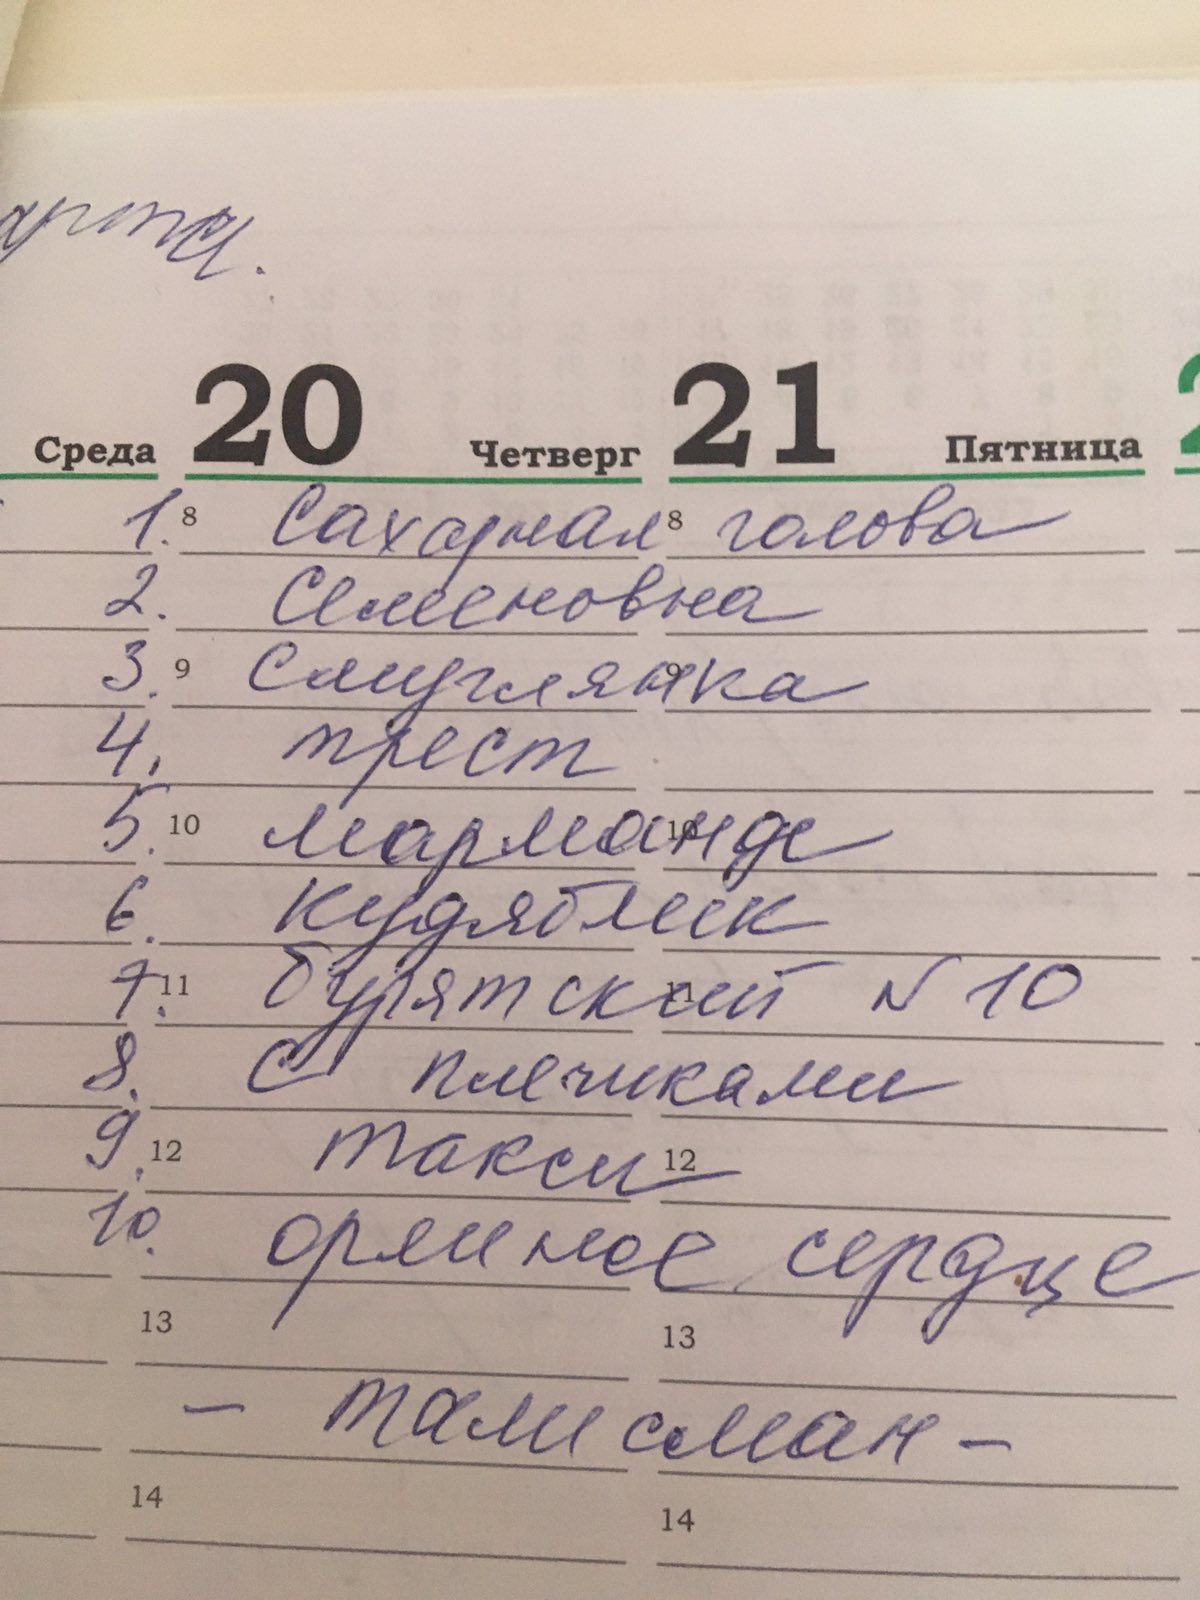 арта.
Среда 20 Четверг 21 Пятница
1. 8 Сахарная 8 голова
2. Семеновна
3. 9 Смуглянка 9
4. трест
5. 10 марманде 10
6. кудяблик
7. 11 бурятский 11 N 10
8. С плечиками
9. 12 такси 12
10. орлиное сердце
13 13
- талисман -
14 14